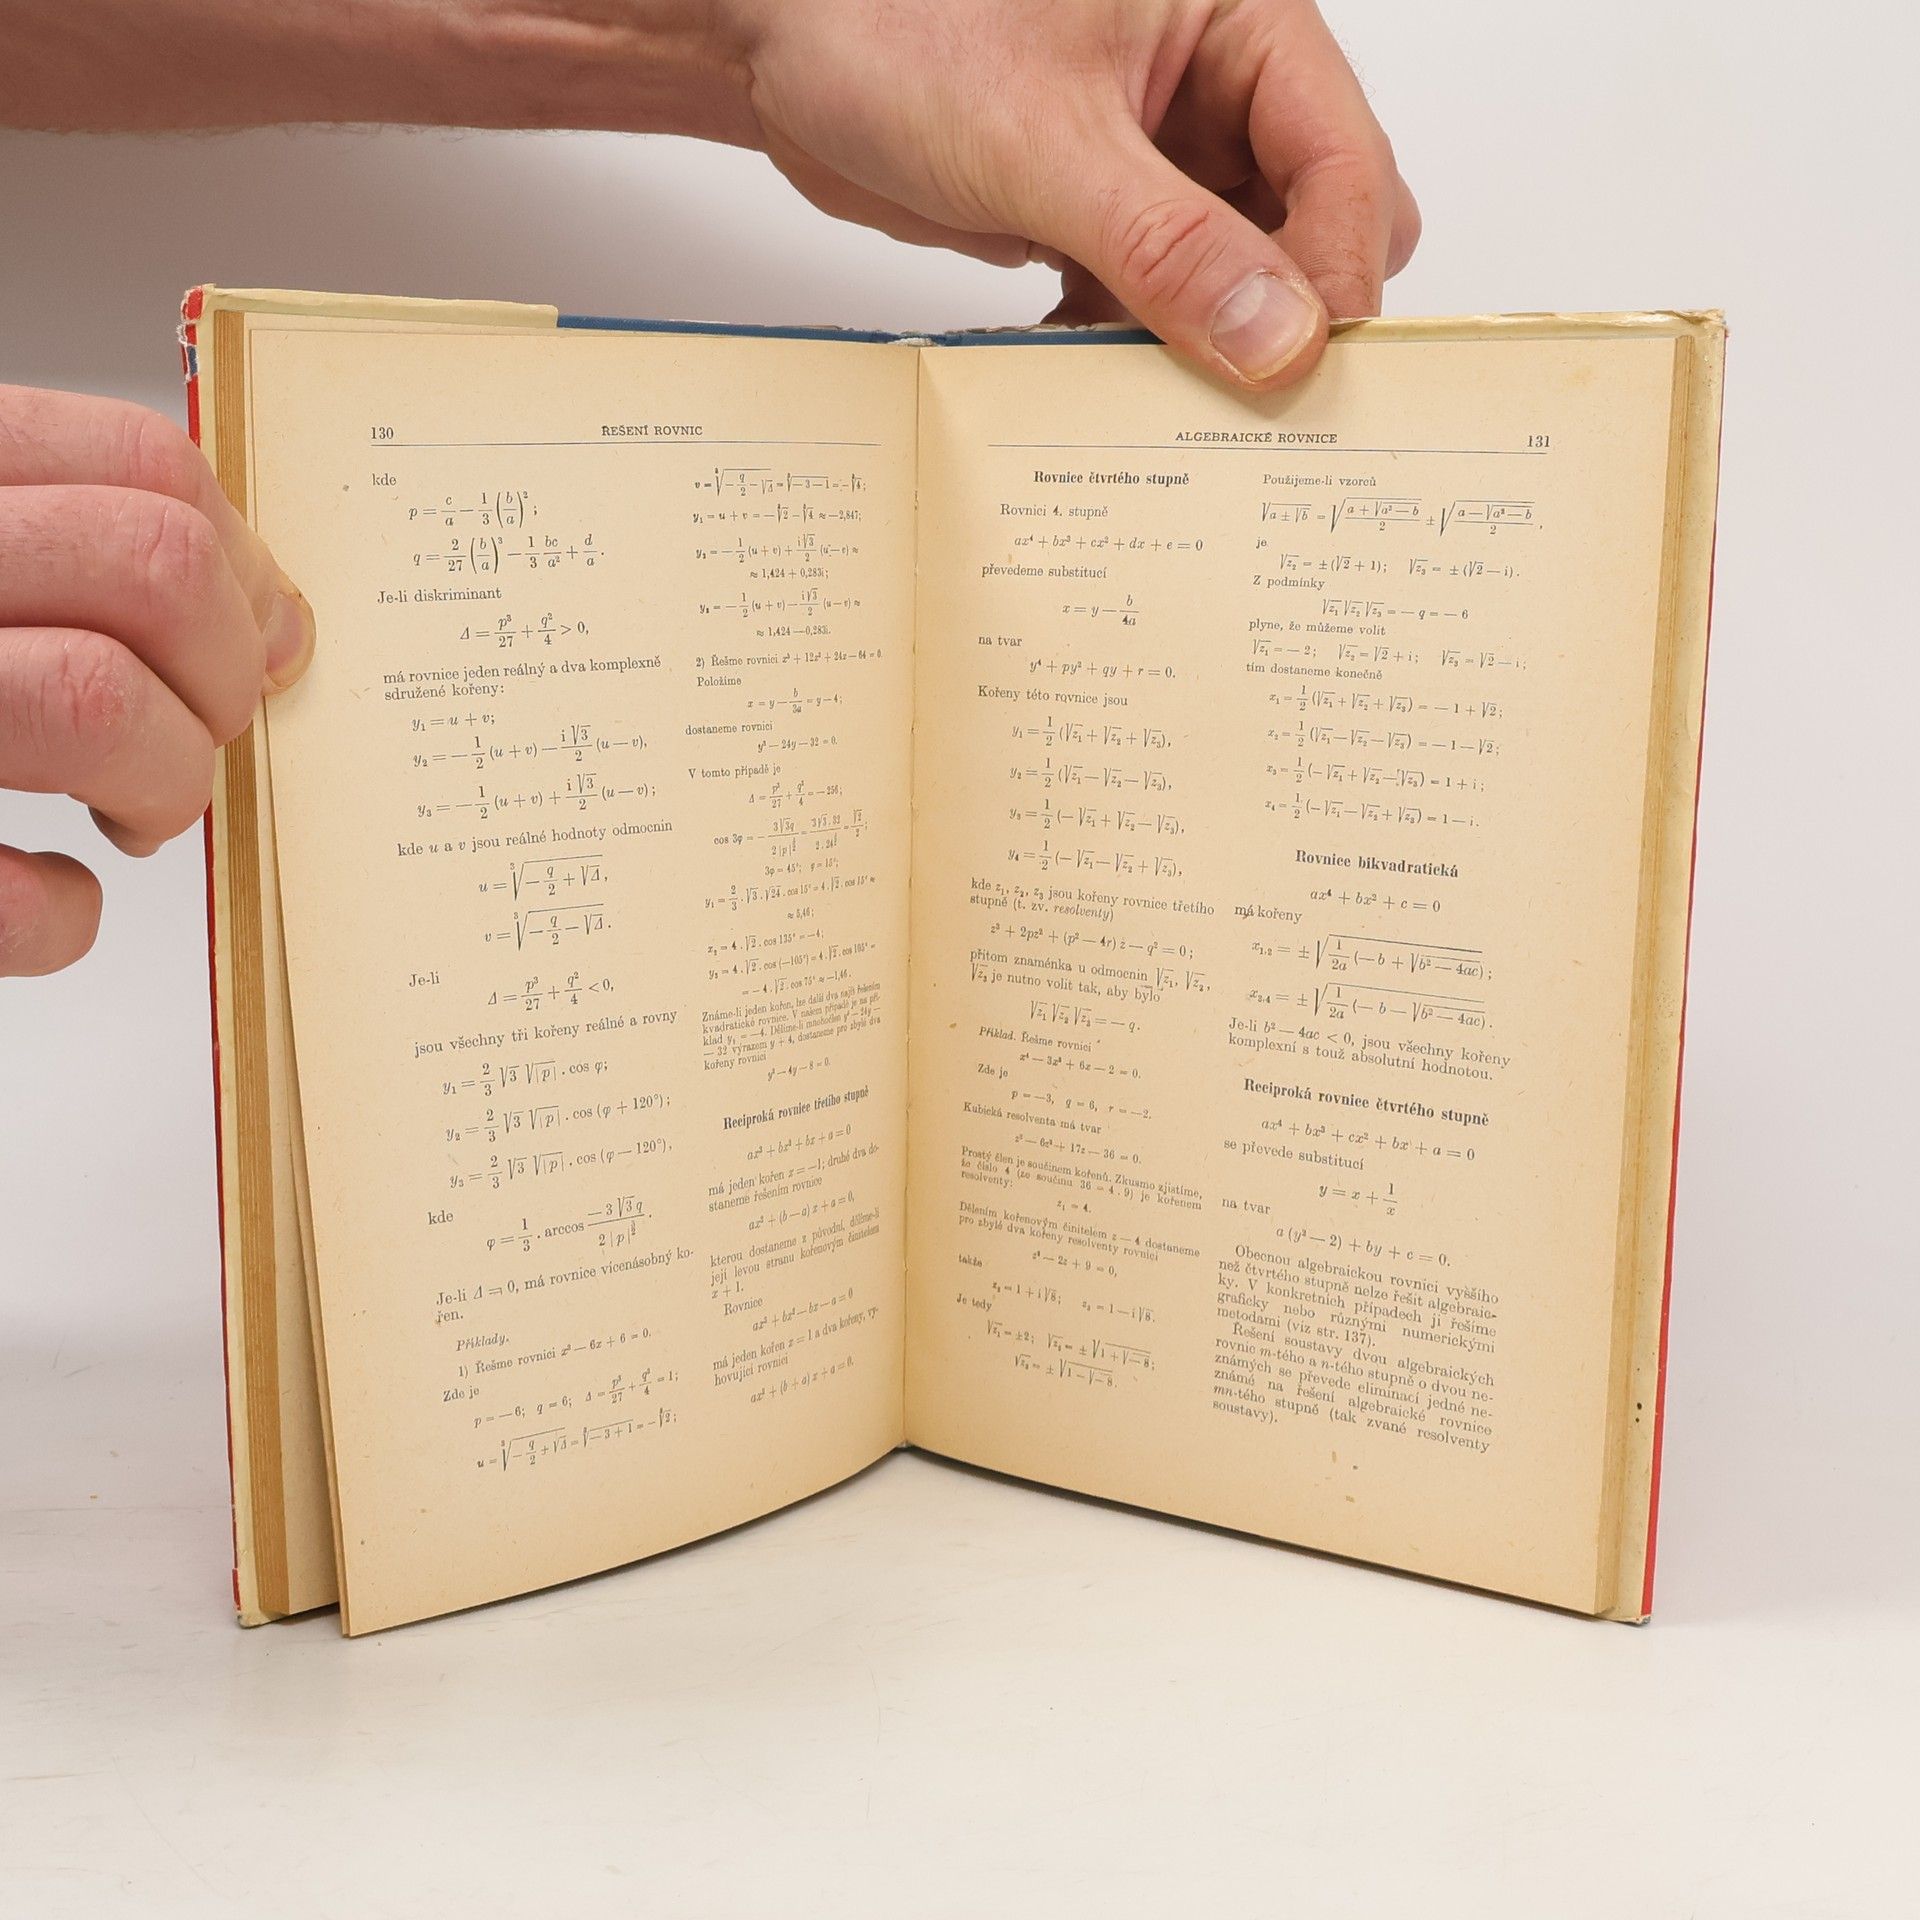 130
ŘEŠENÍ ROVNIC
kde
p = c/a − 1/3 (b/a)²;
q = 2/27 (b/a)³ − 1/3 bc/a² + d/a.
Je-li diskriminant
Δ = p³/27 + q²/4 > 0,
má rovnice jeden reálný a dva komplexně
sdružené kořeny:
y₁ = u + v;
y₂ = −1/2 (u + v) − i√3/2 (u − v),
y₃ = −1/2 (u + v) + i√3/2 (u − v);
kde u a v jsou reálné hodnoty odmocnin
u = ³√(−q/2 + √Δ),
v = ³√(−q/2 − √Δ).
Je-li
Δ = p³/27 + q²/4 < 0,
jsou všechny tři kořeny reálné a rovny
y₁ = 2/3 √3 √|p| . cos φ;
y₂ = 2/3 √3 √|p| . cos (φ + 120°);
y₃ = 2/3 √3 √|p| . cos (φ − 120°),
kde
φ = 1/3 . arccos (−3√3 q)/(2 |p|^(3/2)).
Je-li Δ = 0, má rovnice vícenásobný ko-
řen.
Příklady.
1) Řešme rovnici x³ − 6x + 6 = 0.
Zde je
p = −6; q = 6; Δ = p³/27 + q²/4 = 1;
u = ³√(−q/2 + √Δ) = ³√(−3 + 1) = −³√2;
v = ³√(−q/2 − √Δ) = ³√(−3 − 1) = −³√4;
y₁ = u + v = −³√2 − ³√4 ≈ −2,847;
y₂ = −1/2 (u + v) + i√3/2 (u − v) ≈
≈ 1,424 + 0,283i;
y₃ = −1/2 (u + v) − i√3/2 (u − v) ≈
≈ 1,424 − 0,283i.
2) Řešme rovnici x³ + 12x² + 24x − 64 = 0.
Položíme
x = y − b/3a = y − 4;
dostaneme rovnici
y³ − 24y − 32 = 0.
V tomto případě je
Δ = p³/27 + q²/4 = −256;
cos 3φ = − 3√3q/(2 |p|^(3/2)) = 3√3 . 32/(2 . 24^(3/2)) = √2/2;
3φ = 45°; φ = 15°;
y₁ = 2/3 . √3 . √24 . cos 15° = 4 . √2 . cos 15° ≈
≈ 5,46;
y₂ = 4 . √2 . cos 135° = −4;
y₃ = 4 . √2 . cos (−105°) = 4 . √2 . cos 105° =
= −4 . √2 . cos 75° ≈ −1,46.
Známe-li jeden kořen, lze další dva najít řešením
kvadratické rovnice. V našem případě je na pří-
klad y₁ = −4. Dělíme-li mnohočlen y³ − 24y −
− 32 výrazem y + 4, dostaneme pro zbylé dva
kořeny rovnici
y² − 4y − 8 = 0.
Reciproká rovnice třetího stupně
ax³ + bx² + bx + a = 0
má jeden kořen x = −1; druhé dva do-
staneme řešením rovnice
ax² + (b − a) x + a = 0,
kterou dostaneme z původní, dělíme-li
její levou stranu kořenovým činitelem
x + 1.
Rovnice
ax³ + bx² − bx − a = 0
má jeden kořen x = 1 a dva kořeny, vy-
hovující rovnici
ax² + (b + a) x + a = 0.
ALGEBRAICKÉ ROVNICE
131
Rovnice čtvrtého stupně
Rovnici 4. stupně
ax⁴ + bx³ + cx² + dx + e = 0
převedeme substitucí
x = y − b/4a
na tvar
y⁴ + py² + qy + r = 0.
Kořeny této rovnice jsou
y₁ = 1/2 (√z₁ + √z₂ + √z₃),
y₂ = 1/2 (√z₁ − √z₂ − √z₃),
y₃ = 1/2 (−√z₁ + √z₂ − √z₃),
y₄ = 1/2 (−√z₁ − √z₂ + √z₃),
kde z₁, z₂, z₃ jsou kořeny rovnice třetího
stupně (t. zv. resolventy)
z³ + 2pz² + (p² − 4r) z − q² = 0;
přitom znaménka u odmocnin √z₁, √z₂,
√z₃ je nutno volit tak, aby bylo
√z₁ √z₂ √z₃ = −q.
Příklad. Řešme rovnici
x⁴ − 3x² + 6x − 2 = 0.
Zde je
p = −3, q = 6, r = −2.
Kubická resolventa má tvar
z³ − 6z² + 17z − 36 = 0.
Prostý člen je součinem kořenů. Zkusmo zjistíme,
že číslo 4 (ze součinu 36 = 4 . 9) je kořenem
resolventy:
z₁ = 4.
Dělením kořenovým činitelem z − 4 dostaneme
pro zbylé dva kořeny resolventy rovnici
z² − 2z + 9 = 0,
takže
z₂ = 1 + i√8; z₃ = 1 − i√8.
Je tedy
√z₁ = ±2; √z₂ = ±√(1 + √−8);
√z₃ = ±√(1 − √−8).
Použijeme-li vzorců
√(a ± √b) = √((a + √(a² − b))/2) ± √((a − √(a² − b))/2),
je
√z₂ = ±(√2 + i); √z₃ = ±(√2 − i).
Z podmínky
√z₁ √z₂ √z₃ = −q = −6
plyne, že můžeme volit
√z₁ = −2; √z₂ = √2 + i; √z₃ = √2 − i;
tím dostaneme konečně
x₁ = 1/2 (√z₁ + √z₂ + √z₃) = −1 + √2;
x₂ = 1/2 (√z₁ − √z₂ − √z₃) = −1 − √2;
x₃ = 1/2 (−√z₁ + √z₂ − √z₃) = 1 + i;
x₄ = 1/2 (−√z₁ − √z₂ + √z₃) = 1 − i.
Rovnice bikvadratická
ax⁴ + bx² + c = 0
má kořeny
x₁,₂ = ±√(1/2a (−b + √(b² − 4ac)));
x₃,₄ = ±√(1/2a (−b − √(b² − 4ac))).
Je-li b² − 4ac < 0, jsou všechny kořeny
komplexní s touž absolutní hodnotou.
Reciproká rovnice čtvrtého stupně
ax⁴ + bx³ + cx² + bx + a = 0
se převede substitucí
y = x + 1/x
na tvar
a (y² − 2) + by + c = 0.
Obecnou algebraickou rovnici vyššího
než čtvrtého stupně nelze řešit algebraic-
ky. V konkretních případech ji řešíme
graficky nebo různými numerickými
metodami (viz str. 137).
Řešení soustavy dvou algebraických
rovnic m-tého a n-tého stupně o dvou ne-
známých se převede eliminací jedné ne-
známé na řešení algebraické rovnice
mn-tého stupně (tak zvané resolventy
soustavy).